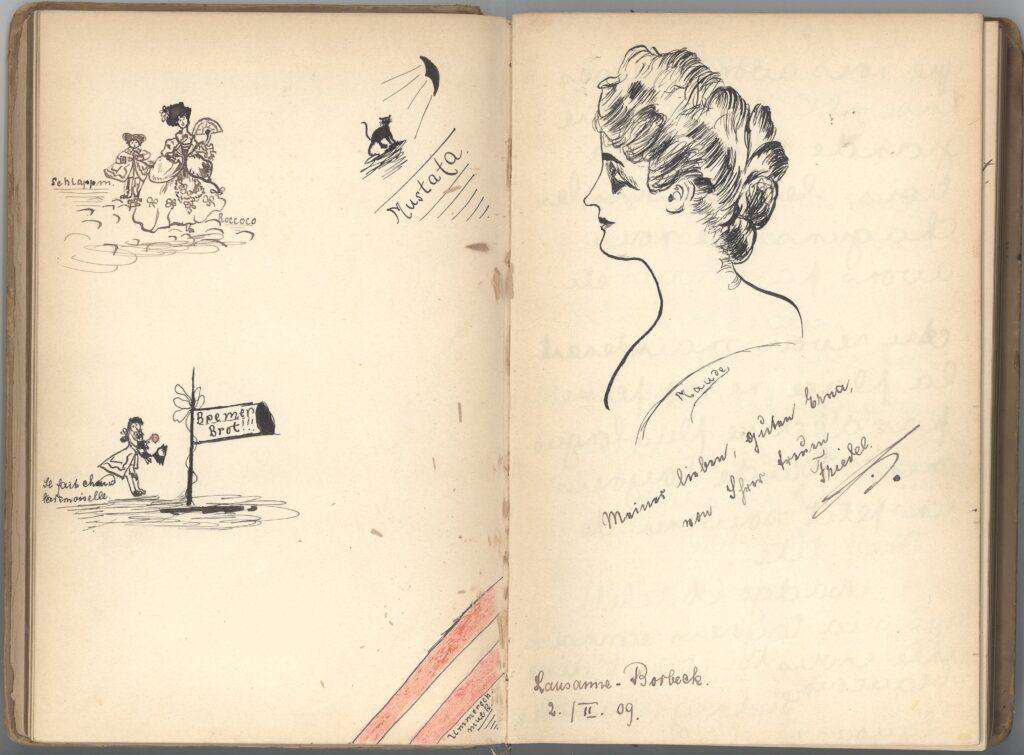 Schlappm.
Roccoco
Mustafa.
Bremer
Brot!!!
Il fait chaud
Mademoiselle.
Maude.
Meiner lieben, guten Erna,
von Ihrer treuen
Friedel.
Lausanne - Borbeck.
2./II. 09.